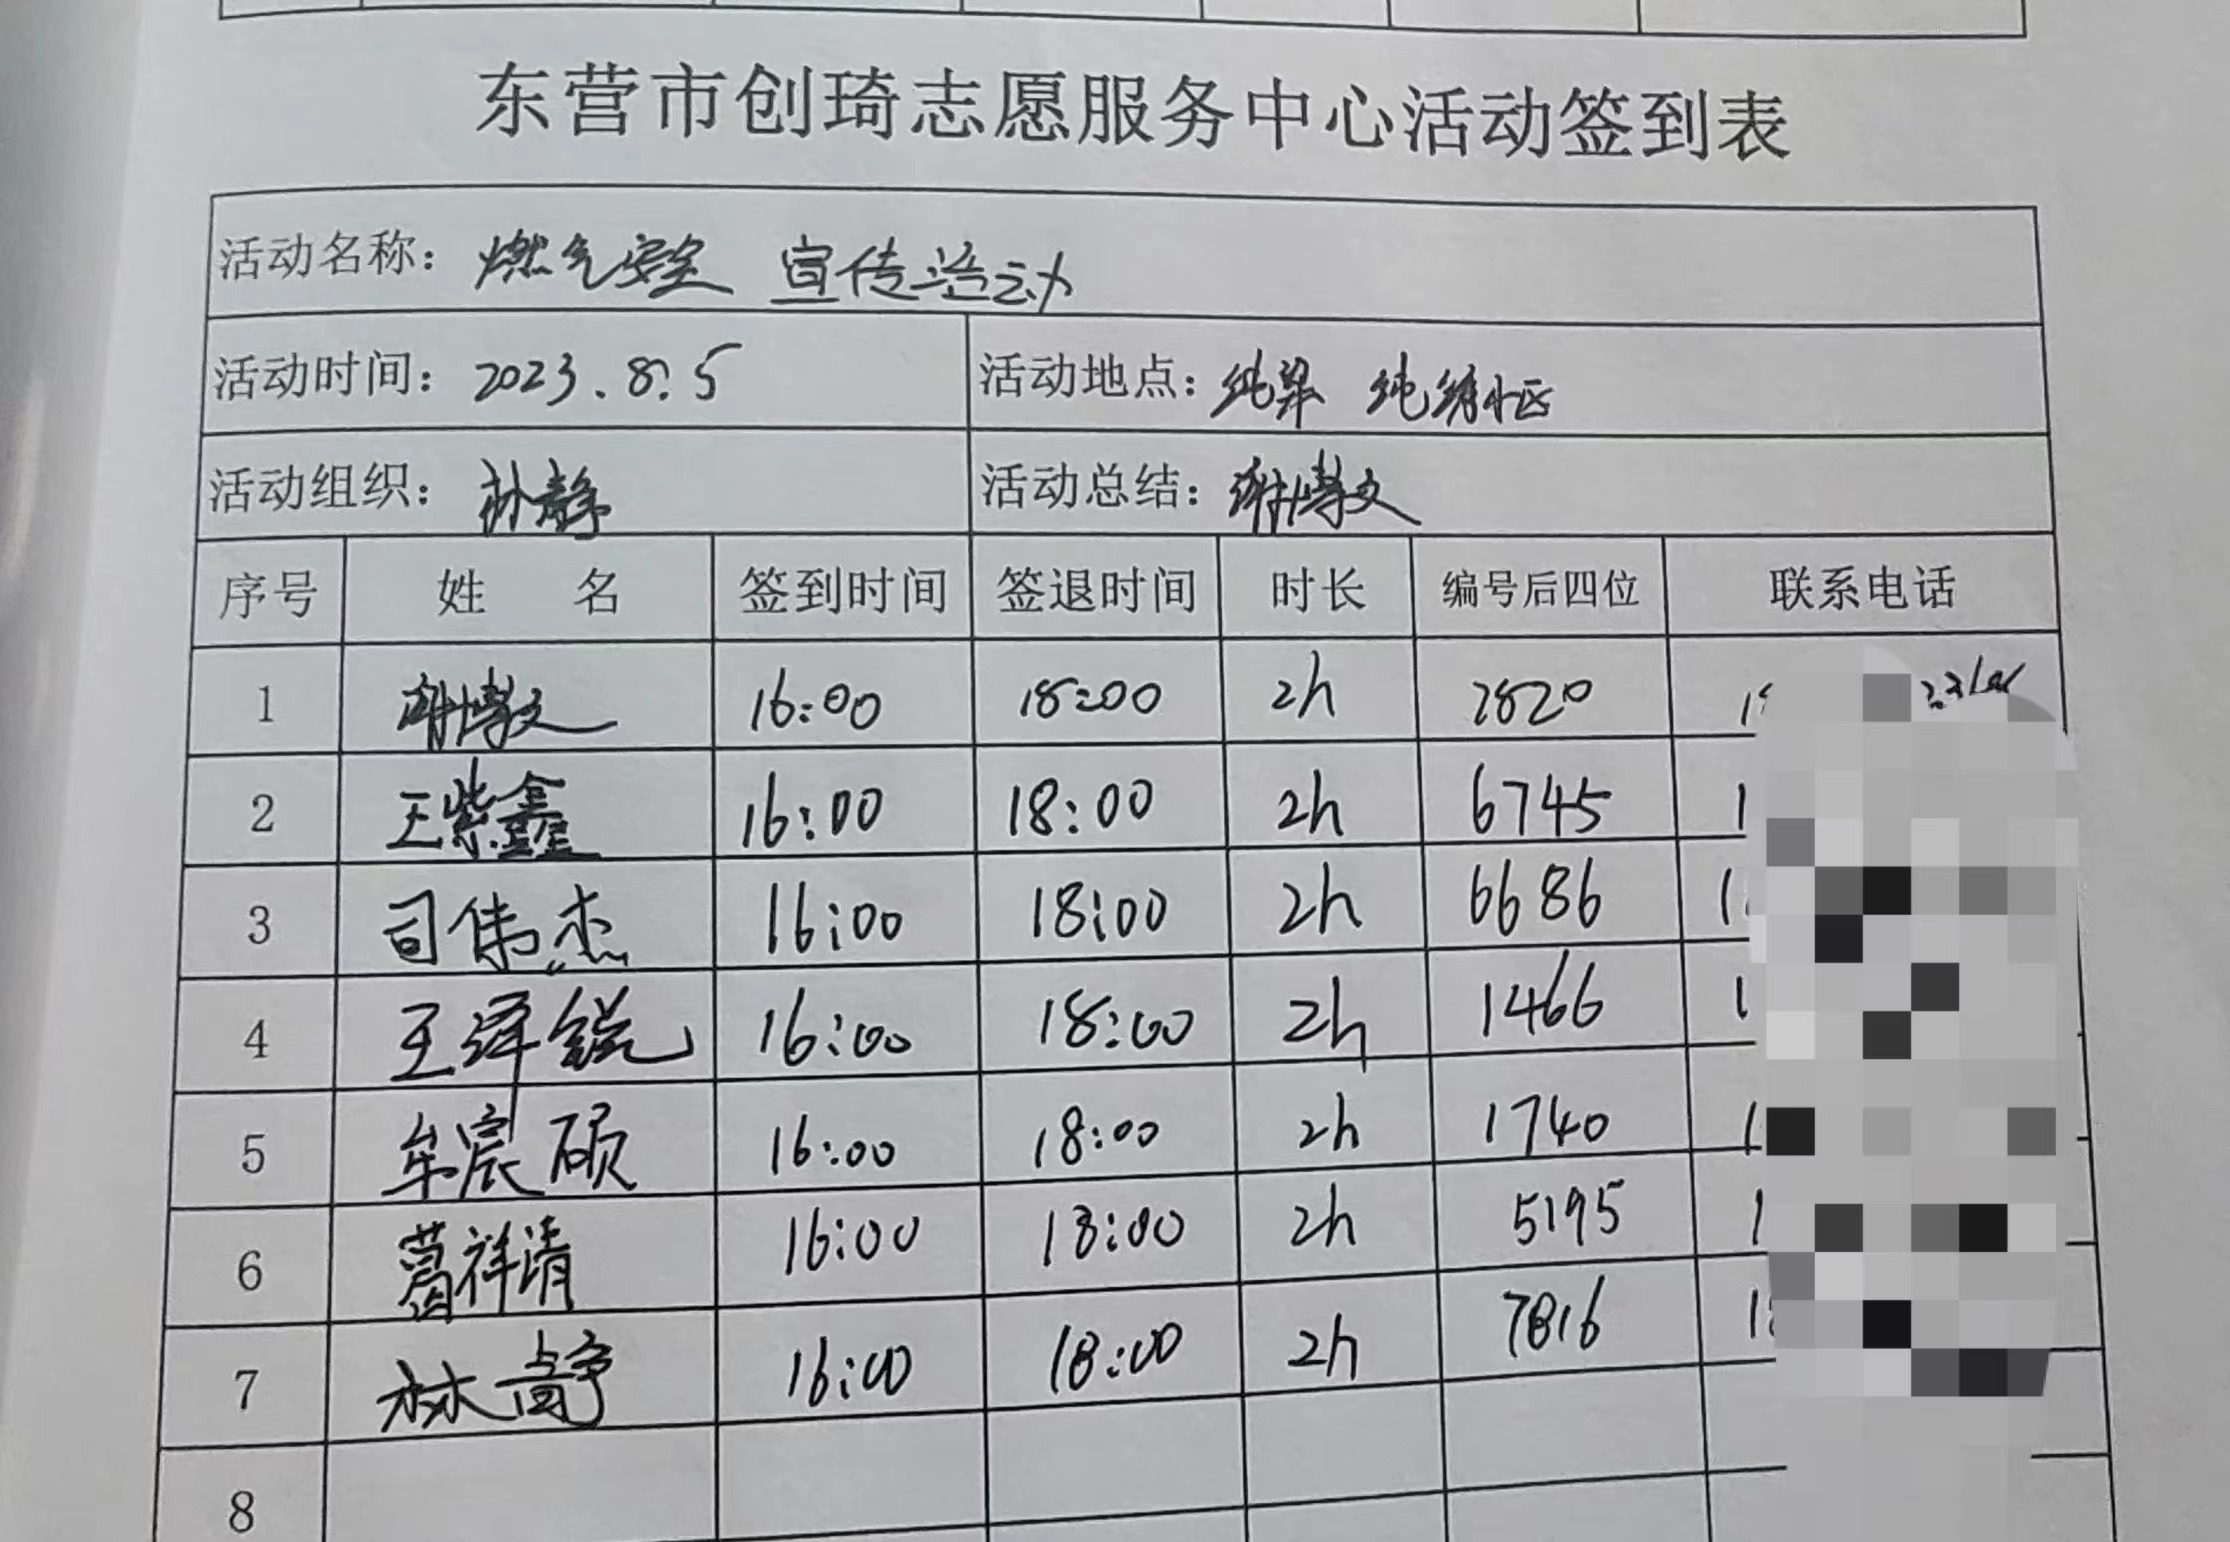 东营市创琦志愿服务中心活动签到表
活动名称：燃气安全 宣传活动
活动时间：2023.8.5 活动地点：纯梁
活动组织： 活动总结：谢博文
序号 姓 名 签到时间 签退时间 时长 编号后四位 联系电话
1 谢博文 16:00 18:00 2h 2820
2 王紫鑫 16:00 18:00 2h 6745 1
3 司伟杰 16:00 18:00 2h 6686 1
4 王泽锐 16:00 18:00 2h 1466 1
5 牟宸硕 16:00 18:00 2h 1740 1
6 葛祥清 16:00 18:00 2h 5195 1
7 林静 16:00 18:00 2h 7816 1
8